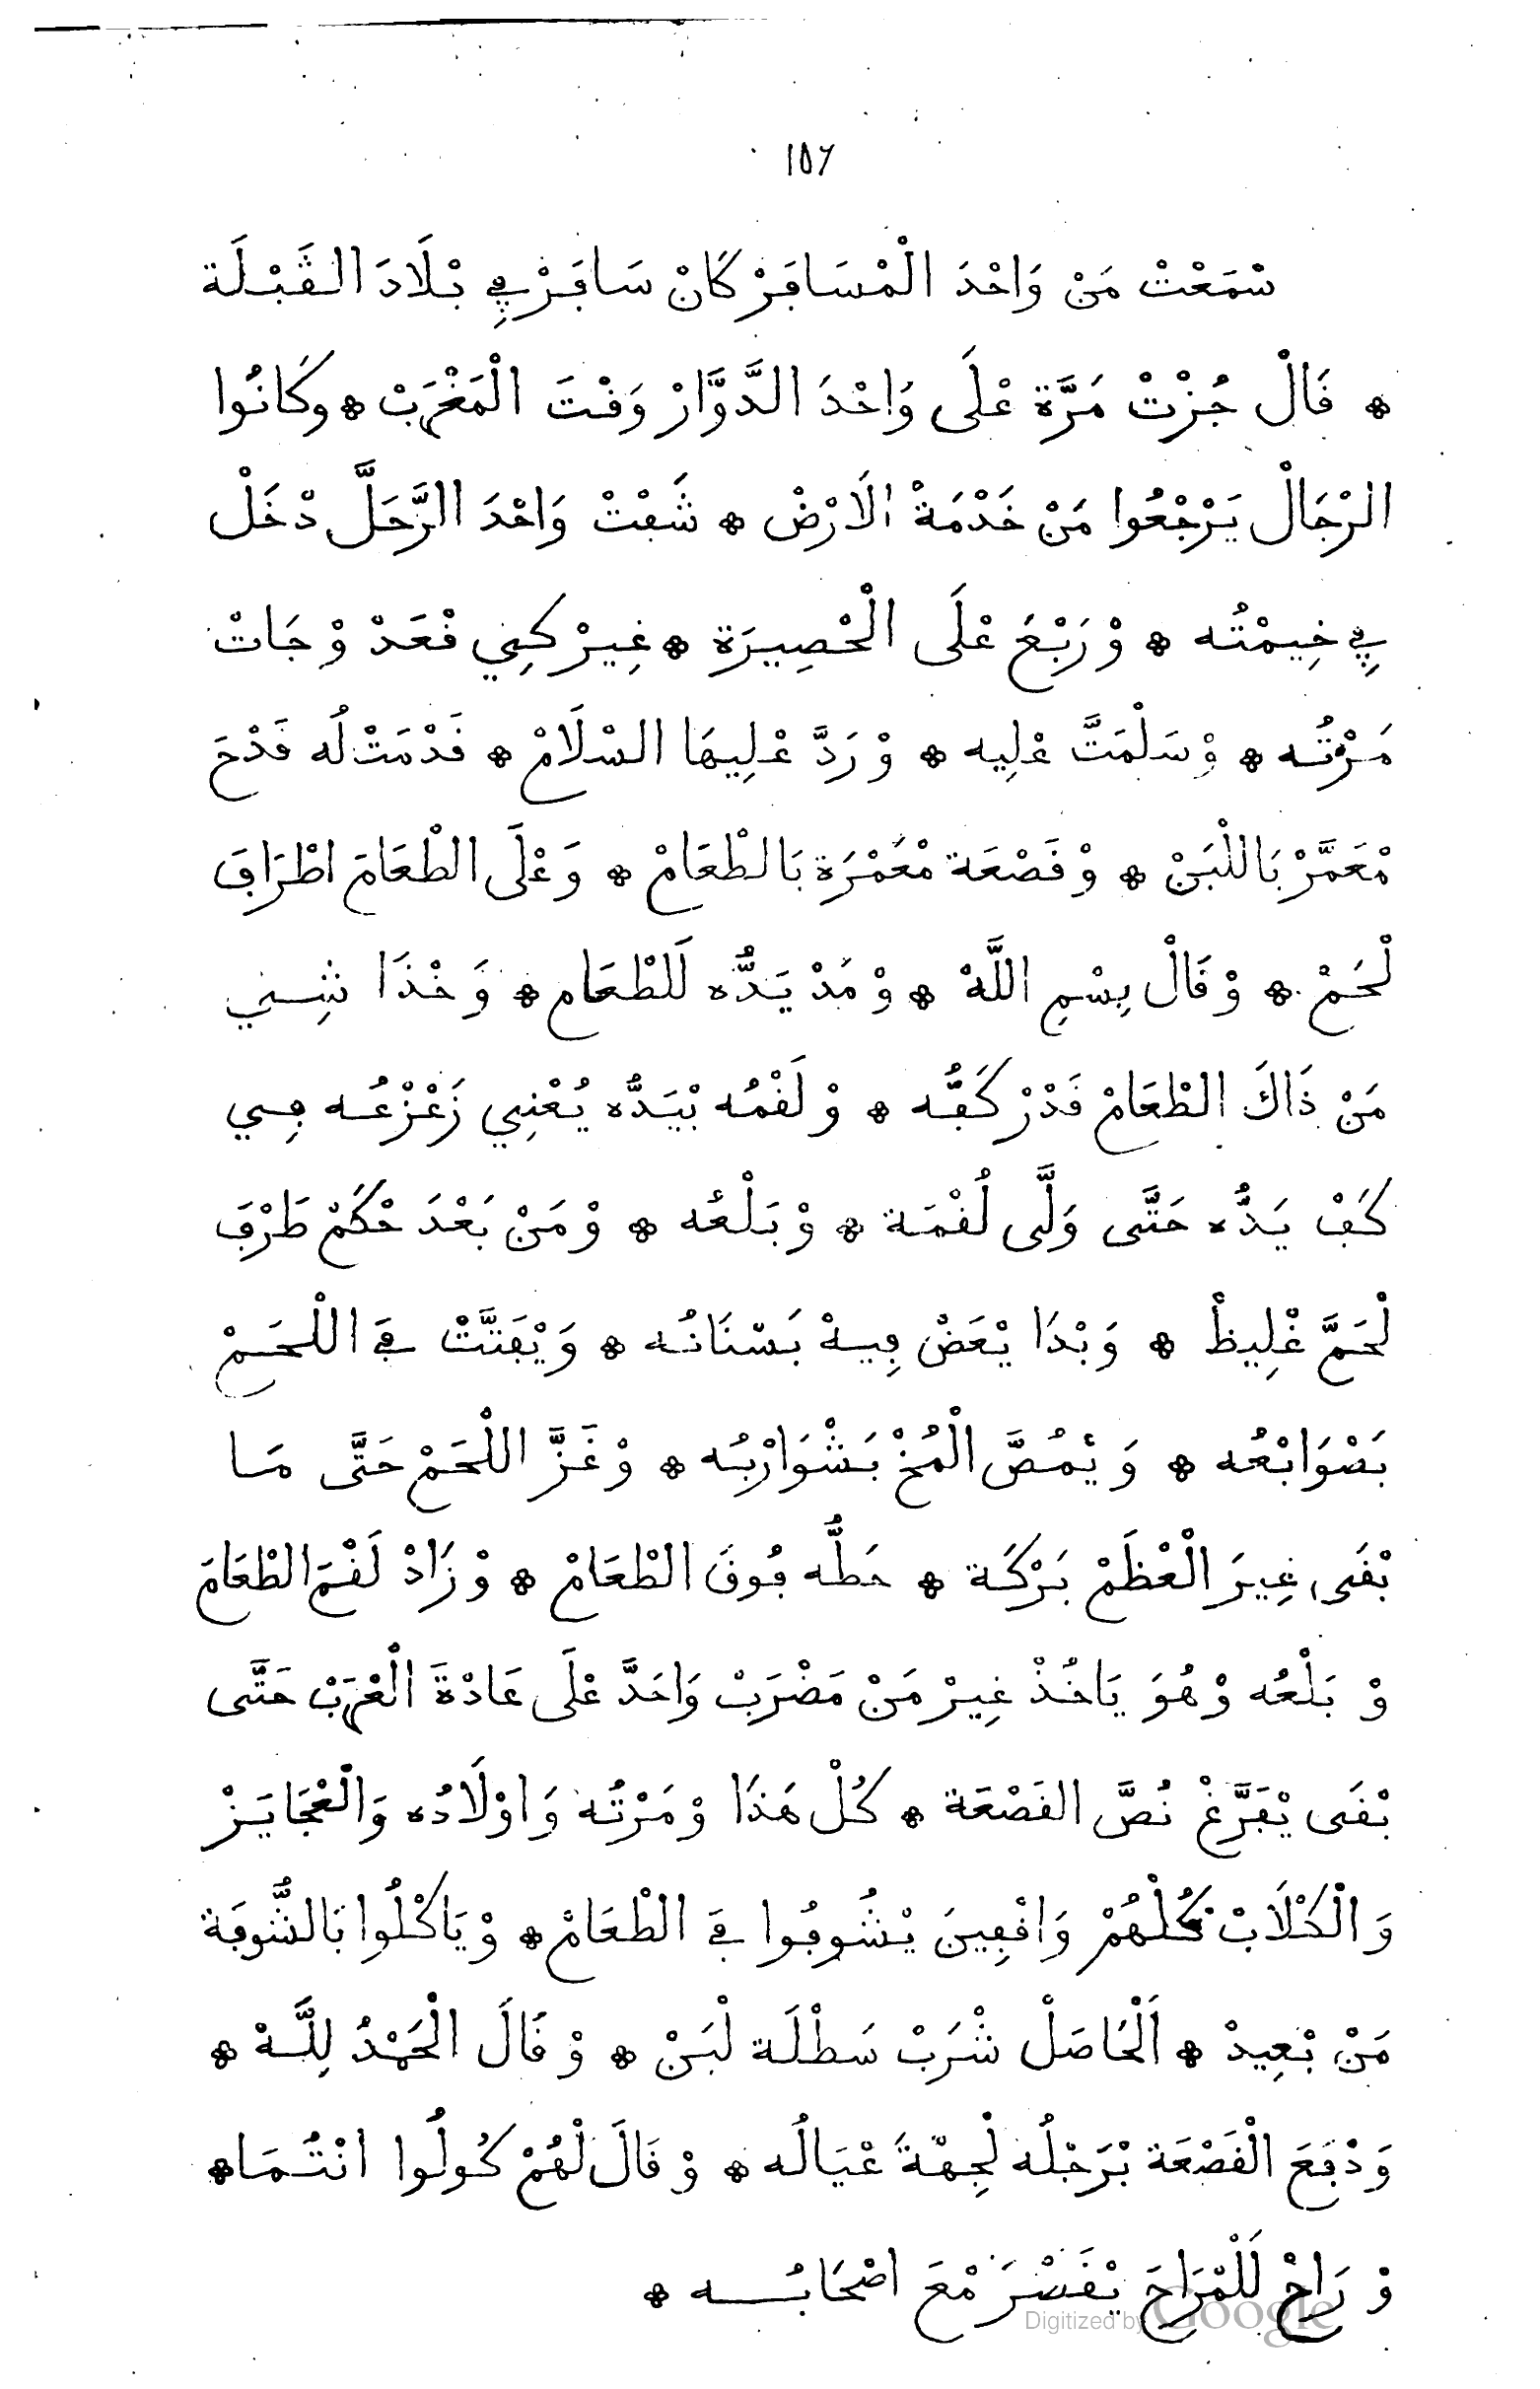 ١٥٦
سْمَعْتْ مَنْ وَاحْدَ الْمْسَافَرْ كَانْ سَافَرْ فِي بْلَادَ الْقَبْلَة
* قَالْ جُزْتْ مَرَّة عْلَى وَاحْدَ الدَّوَّارْ وَقْتَ الْمَغْرَبْ * وكَانُوا
الرْجَالْ يَرْجْعُوا مَنْ خَدْمَةْ الَارْضْ * شَفْتْ وَاحْدَ الرَّجَلَّ دْخَلْ
فِي خِيمْتُه * وْرَبْعْ عْلَى الْحْصِيرَة * غِيرْ كِي قْعَدْ وْجَاتْ
مَرْتُه * وْسَلْمَتَّ عْلِيه * وْرَدَّ عْلِيهَا السْلَامْ * قَدْمَتْ لُه قَدْحَ
مْعَمَّرْ بَاللْبَنْ * وْقَصْعَة مْعَمْرَة بَالطْعَامْ * وَعْلَى الطْعَامَ اطْرَافَ
لْحَمْ * وْقَالْ بِسْمِ اللَّهْ * وْمَدْ يَدُّه لَلطْعَام * وَخْذَا شِي
مَنْ ذَاكَ الطْعَامْ قَدْرْ كَفُّه * وْلَقْمُه بْيَدُّه يُعْنِي زَعْزْعُه فِي
كَفْ يَدُّه حَتَّى وَلَّى لُقْمَة * وْبَلْعُه * وْمَنْ بَعْدَ حْكَمْ طَرْفَ
لْحَمَّ غْلِيظْ * وَبْدَا يْعَضْ فِيهْ بَسْنَانُه * وَيْفَتَّتْ فَي اللْحَمْ
بَصْوَابْعُه * وَيْمُصَّ الْمُخْ بَشْوَارْبُه * وْغَزَّ اللْحَمْ حَتَّى مَا
بْقَى غِيرَ الْعْظَمْ بَرْكَة * حَطُّه فُوقَ الطْعَامْ * وْزَادْ لَقْمَ الطْعَامَ
وْبَلْعُه وْهُوَ يَاخُذْ غِيرْ مَنْ مَضْرَبْ وَاحَدَّ عْلَى عَادْةَ الْعْرَبْ حَتَّى
بْقَى يْفَرَّغْ نُصَّ الْقَصْعَة * كُلْ هَذَا وْمَرْتُه وَاوْلَادُه وَالْعْجَايَزْ
وَالْكْلَابْ كُلْهُمْ وَاقْفِينَ يْشُوفُوا فَي الطْعَامْ * وْيَاكْلُوا بَالشُّوفَة
مَنْ بْعِيدْ * اَلْحَاصَلْ شْرَبْ سَطْلَة لْبَنْ * وْقَالَ الْحَمْدُ لِلَّهْ *
وَدْفَعَ الْقَصْعَة بْرَجْلُه لْجِهَّةَ عْيَالُه * وْقَالَ لْهُمْ كُولُوا انْتُمَا *
وْرَاحْ لَلْمْرَاحَ يْقَسْرَ مْعَ اصْحَابُه *
Digitized by Google